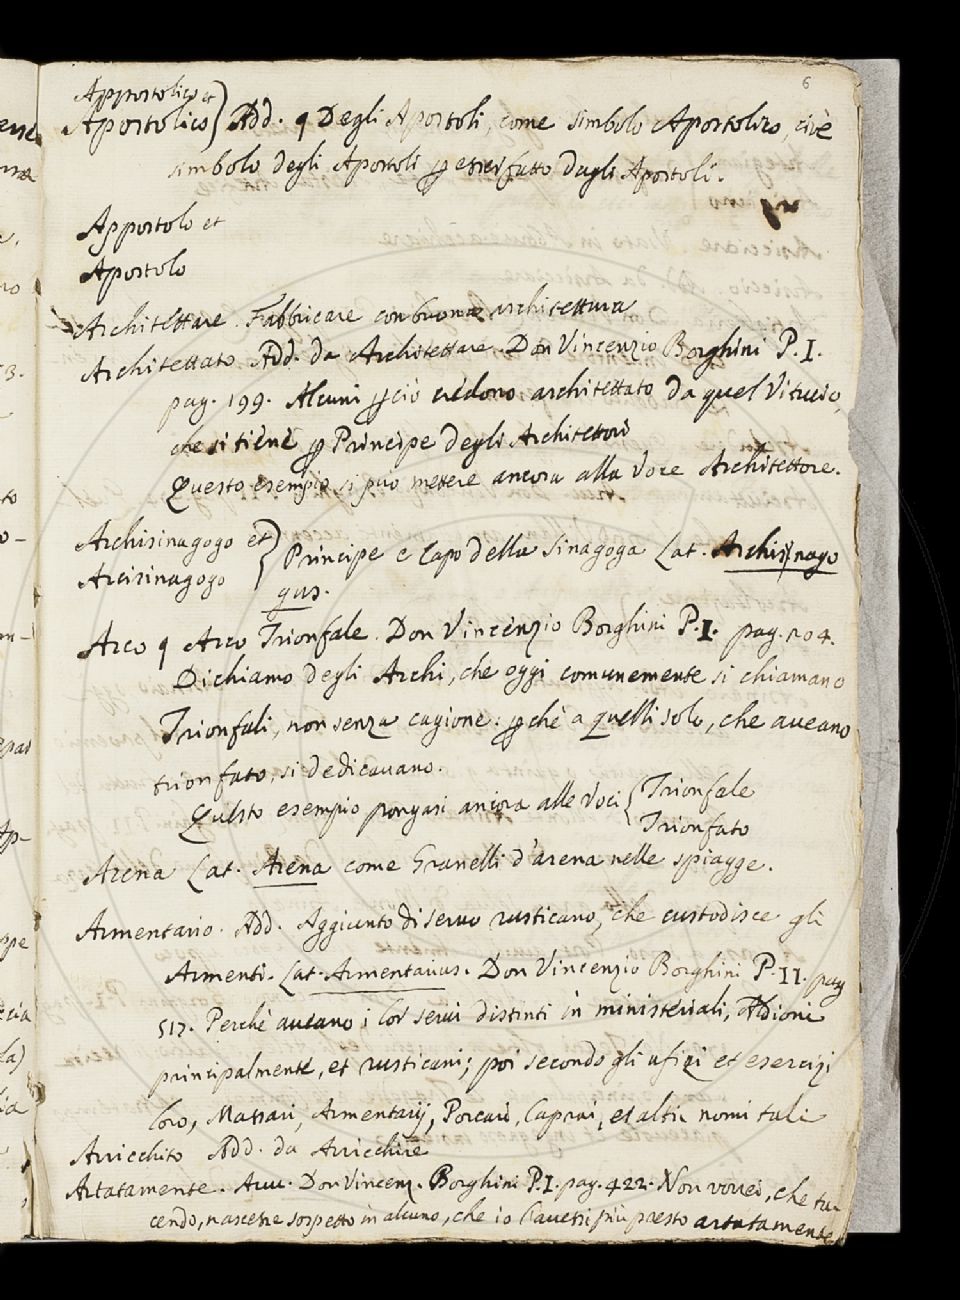 6
Appostolico et
Apostolico } Add. q Degli Apostoli, come simbolo Apostolico, cioè
simbolo degli Apostoli ꝑ esser fatto dagli Apostoli.
Appostolo et
Apostolo
Architettare. Fabbricare con buona architettura
Architettato. Add. da Architettare. Don Vincenzio Borghini P. I.
pag. 199. Alcuni ꝑ ciò credono architettato da quel Vitruvio,
che si tiene ꝑ Principe degli Architettori
Questo esempio si può mettere ancora alla Voce Architettore.
Archisinagogo et } Principe e Capo della Sinagoga Lat. Archisynago
Arcisinagogo
gus.
Arco q Arco Trionfale. Don Vincenzio Borghini P. I. pag. 104.
Dichiamo degli Archi, che oggi comunemente si chiamano
Trionfali, non senza cagione: ꝑchè a quelli solo, che aveano
trionfato, si dedicavano.
Questo esempio pongasi ancora alle Voci { Trionfale
Trionfato
Arena Lat. Arena come Granelli d'arena nelle spiagge.
Armentario. Add. Aggiunto di servo rusticano, che custodisce gli
Armenti. Lat. Armentarius. Don Vincenzio Borghini P. II. pag
517. Perchè aveano i lor servi distinti in ministeriali,
principalmente, et rusticani; poi secondo gli ufizi et esercizi
loro, Massari, Armentarij, Porcari, Caprai, et altri nomi tali
Arricchito Add. da Arricchire
Artatamente. Avv. Don Vincenz. Borghini P. I. pag. 422. Non vorrei, che ta-
cendo, nascesse sospetto in alcuno, che io l'avessi più presto artatamente